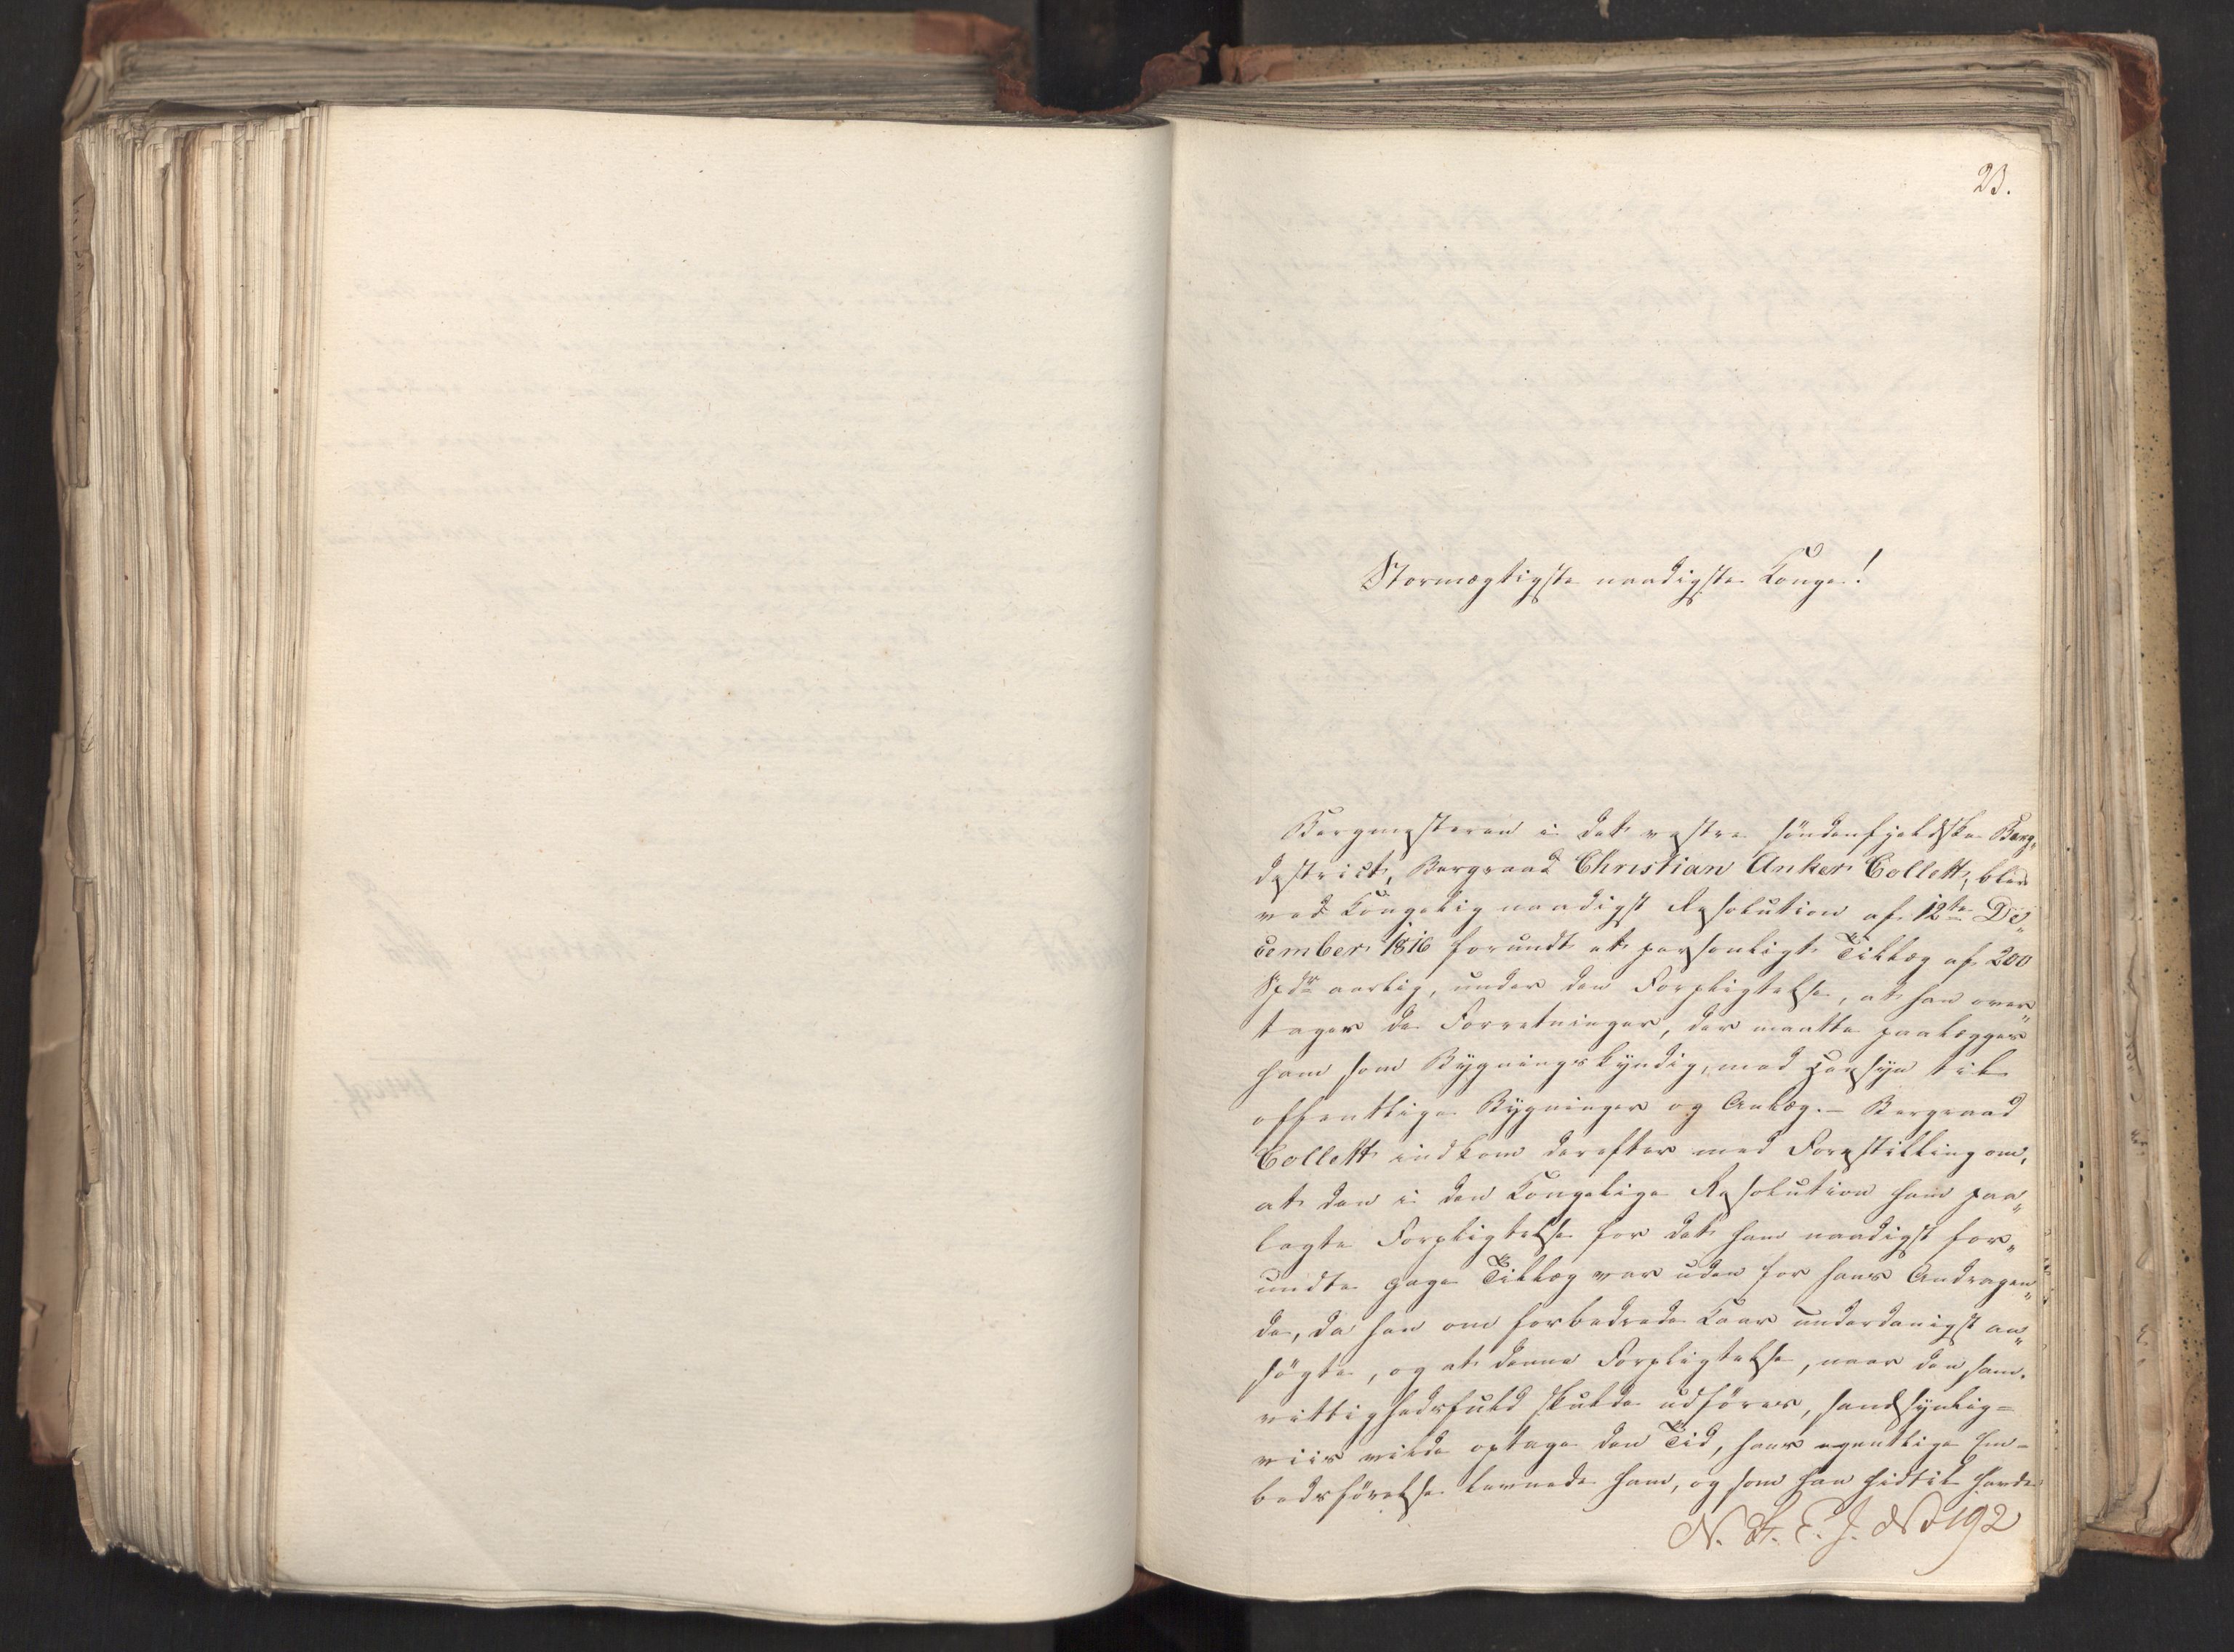 23.
Stormægtigste naadigste Konge!
Bergmesteren i det vestre söndenfjeldske Berg„
destrict, Bergraad Christian Anker Collett, blev
ved Kongelig naadigst Resolution af 12te De„
cember 1816 forundt et personligt Tillæg af 200
Spdr aarlig, under den Forpligtelse, at han over„
tager de Forretninger, der maatte paalægges
ham som Bygningskyndig, med Hensyn til
offentlige Bygninger og Anlæg. – Bergraad
Collett indkom derefter med Forestilling om,
at den i den Kongelige Resolution ham paa„
lagte Forpligtelse for det ham naadigst for„
undte Gage Tillæg var uden for hans Andragen„
de, da han om forbedrede Kaar underdanigst an„
sögte, og at denne Forpligtelse, naar den sam„
vittighedsfuld skulde udföres, sandsynlig=
viis vilde optage den Tid, hans egentlige Em=
bedsförelse levnede ham, og som han hidtil havde
N. St. E. J. No 192